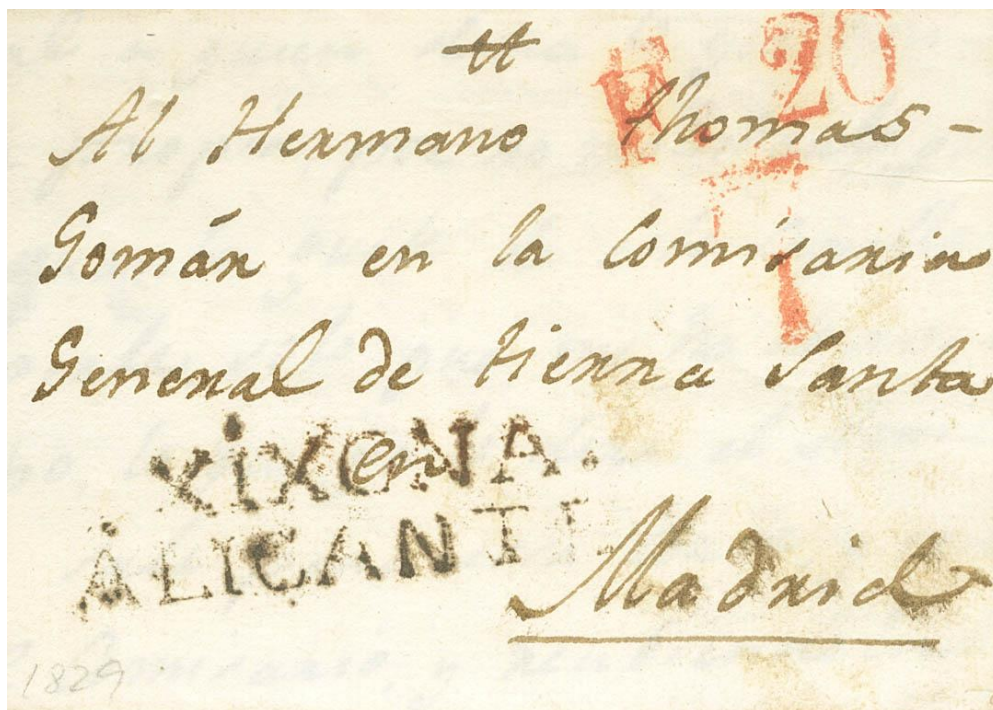 20
Al Hermano Thomas -
Gomán en la Comisaria
General de tierra Santa
en
XIXONA.
ALICANTE.
Madrid
1829